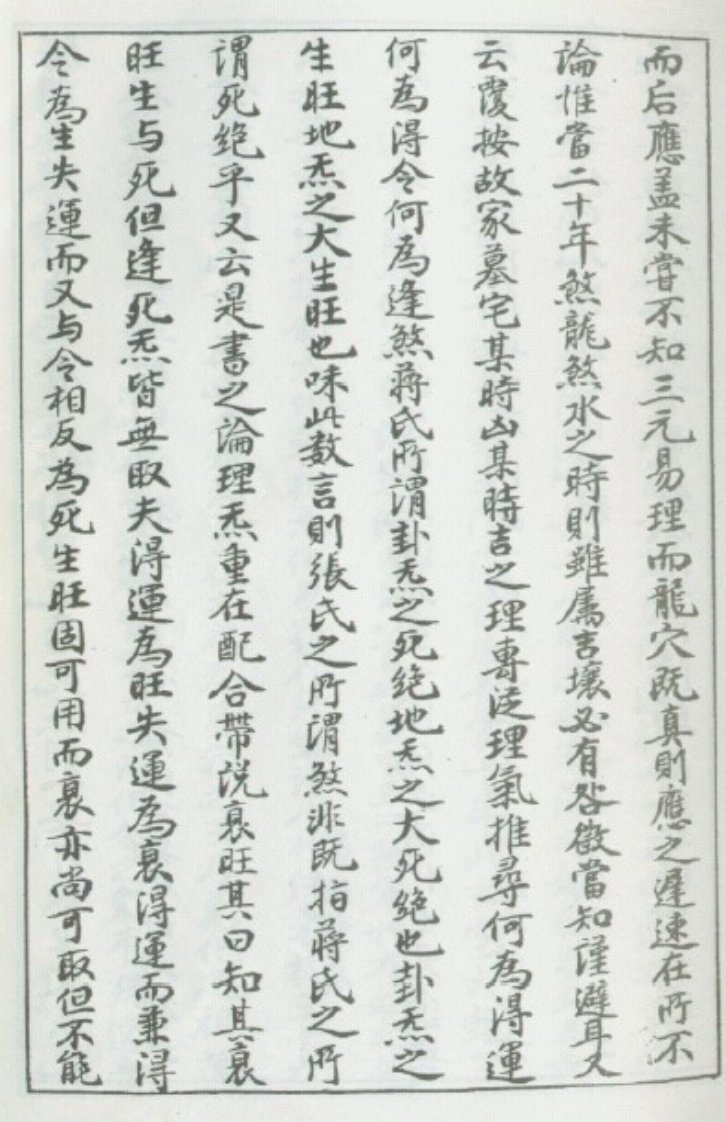 而后應盖未嘗不知三元易理而龍穴既真則應之遲速在所不
論惟當二十年煞龍煞水之時則雖属吉壤必有咎徵當知謹避耳又
云覆按故家墓宅某時凶某時吉之理專从理氣推尋何為得運
何為得令何為逢煞蔣氏所謂卦炁之死绝地炁之大死绝也卦炁之
生旺地炁之大生旺也味此数言則張氏之所謂煞非既指蔣氏之所
谓死绝乎又云是書之論理炁重在配合带説衰旺其曰知其衰
旺生与死但逢死炁皆無取夫得運為旺失運為衰得運而兼得
令為生失運而又与令相反為死生旺固可用而衰亦尚可取但不能